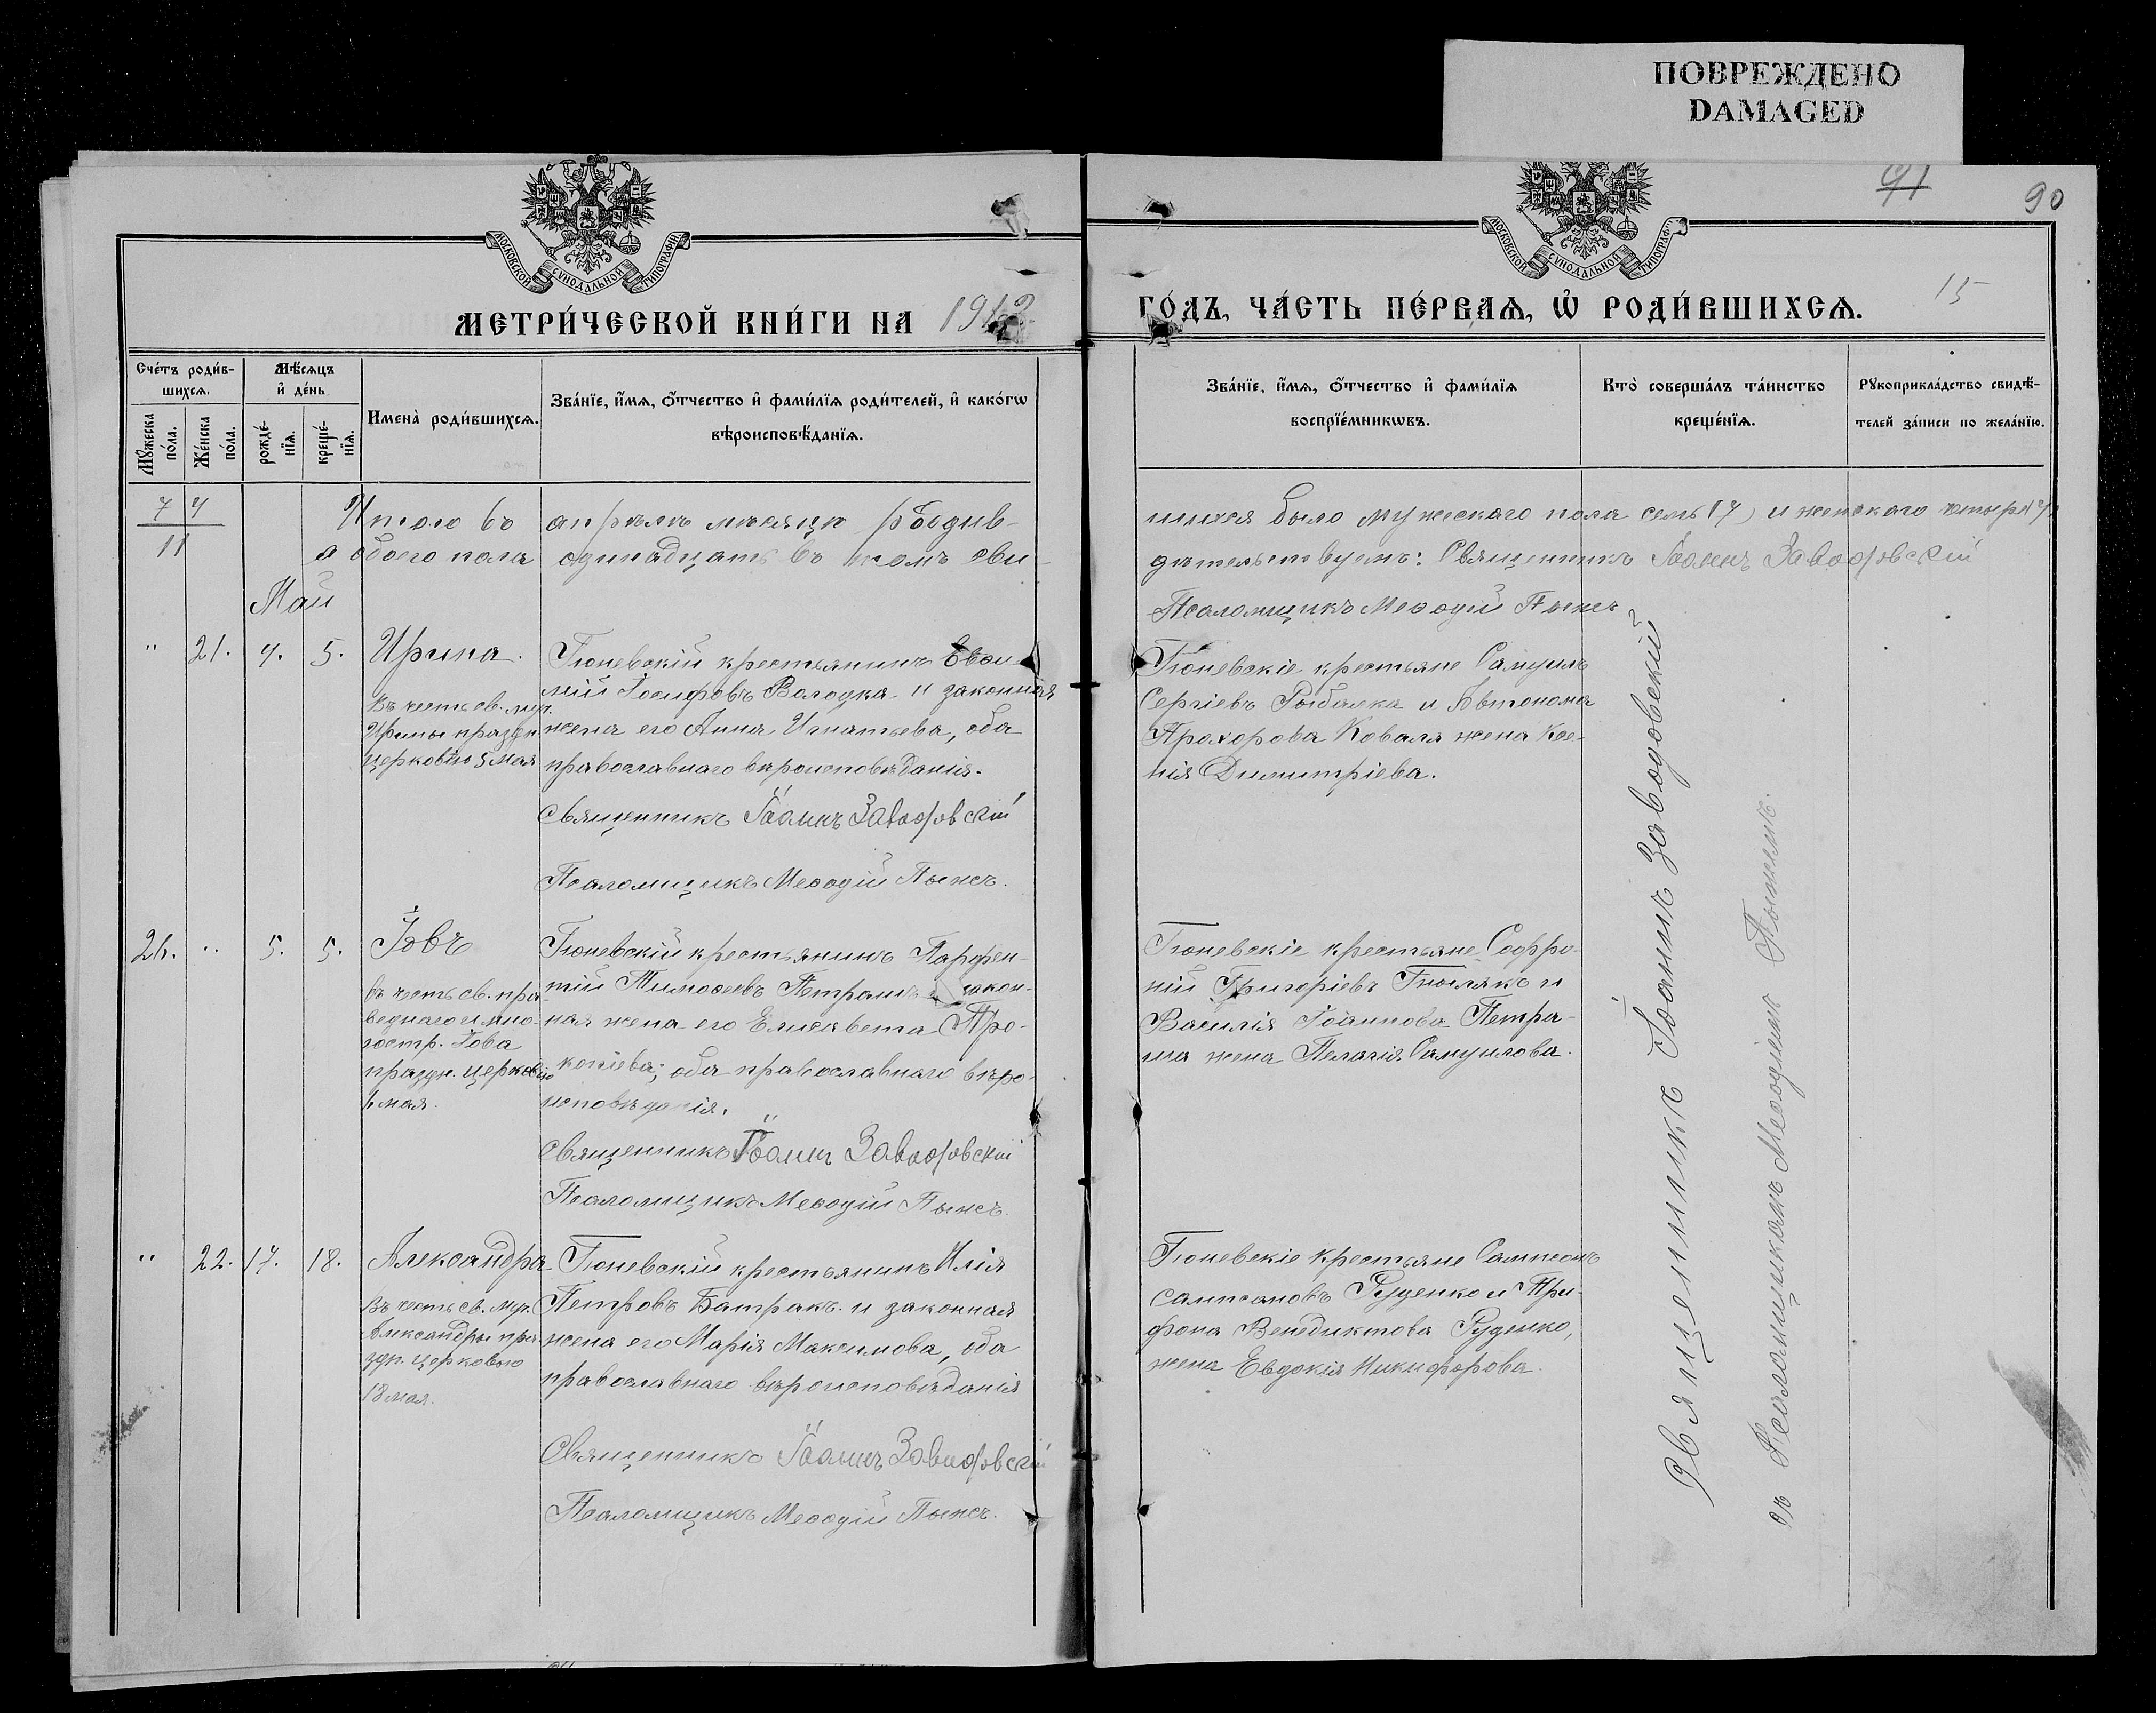 ПОВРЕЖДЕНО
DAMAGED
91
90
МОСКОВСКОЙ СѴНОДАЛЬНОЙ ТИПОГРАФІИ
МОСКОВСКОЙ СѴНОДАЛЬНОЙ ТИПОГРАФІИ
МЕТРИ́ЧЕСКОЙ КНИ́ГИ НА 1912
ГО́ДЪ, ЧА́СТЬ ПЕ́РВАѦ, Ѡ҆ РОДИ́ВШИХСѦ.
15
Сче́тъ роди́в-
шихсѧ.
Мꙋжеска
по́ла.
Же́нска
по́ла.
Мѣ́сѧцъ
и҆ де́нь
рожде́-
нїѧ.
креще́-
нїѧ.
Имена̀ роди́вшихсѧ.
Зва́нїе, и҆́мѧ, ѻ҆́тчество и҆ фами́лїѧ роди́телей, и҆ како́гѡ
вѣроисповѣ́данїѧ.
Зва́нїе, и҆́мѧ, ѻ҆́тчество и҆ фами́лїѧ
воспрїе́мникѡвъ.
Кто̀ соверша́лъ та́инство
креще́нїѧ.
Рꙋкоприкла́дство свидѣ́-
телей за́писи по жела́нїю.
7 4
11
Итого въ апрѣлѣ мѣсяцѣ родив-
шихся было мужескаго пола семь (7) и женскаго четыре (4)
а обоего пола одинадцать въ томъ сви-
дѣтельствуемъ: Священникъ Іоаннъ Заводовскій
Псаломщикъ Меѳодій Пыжъ
Май
" 21. 4. 5. Ирина.
Въ честь св. муч.
Ирины праздн.
церковію 5 мая
Гюневскій крестьянинъ Евѳи-
мій Іосифовъ Володка и законная
жена его Анна Игнатьева, оба
православнаго вѣроисповѣданія.
Священникъ Іоаннъ Заводовскій
Псаломщикъ Меѳодій Пыжъ.
Гюневскіе крестьяне Самуилъ
Сергіевъ Рыбалка и Автонома
Прохорова Коваля жена Ксе-
нія Димитріева.
21. " 5. 5. Іовъ
въ честь св. пра-
веднаго и мно-
гостр. Іова
праздн. церковію
6 мая.
Гюневскій крестьянинъ Парфен-
тій Тимоѳеевъ Петраш и закон-
ная жена его Елисавета Про-
копіева; оба православнаго вѣро-
исповѣданія.
Священникъ Іоаннъ Заводовскій
Псаломщикъ Меѳодій Пыжъ.
Гюневскіе крестьяне Софро-
ній Григоріевъ и
Василія Іоаннова Петра-
ша жена Пелагія Самуилова.
" 22. 17. 18. Александра
Въ честь св. муч.
Александры пра-
здн. церковью
18 мая.
Гюневскій крестьянинъ Илія
Петровъ Батракъ и законная
жена его Марія Максимова, оба
православнаго вѣроисповѣданія
Священникъ Іоаннъ Заводовскій
Псаломщикъ Меѳодій Пыжъ.
Гюневскіе крестьяне Сампсонъ
Сампсоновъ Руденко и Три-
фона Венедиктова Руденко,
жена Евдокія Никифорова.
Священникъ Іоаннъ Заводовскій
съ Псаломщикомъ Меѳодіемъ Пыжемъ.